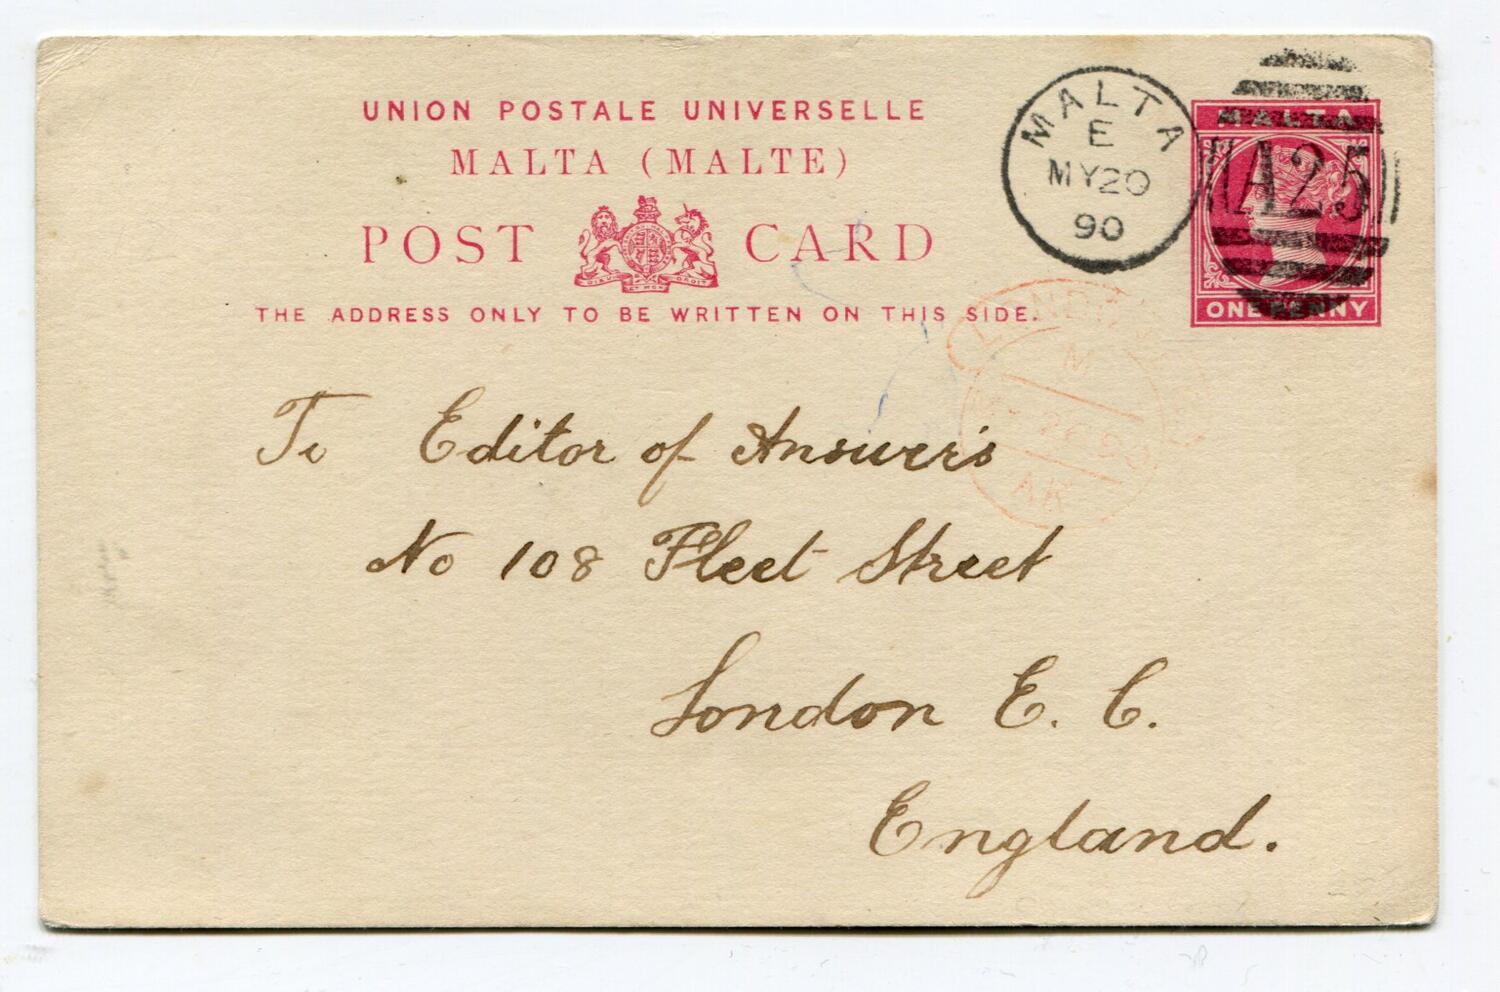 UNION POSTALE UNIVERSELLE
MALTA (MALTE)
POST CARD
THE ADDRESS ONLY TO BE WRITTEN ON THIS SIDE.
MALTA
E
MY 20
90
MALTA
A25
ONE PENNY
M
AR
To Editor of Answer's
No 108 Fleet Street
London E. C.
England.